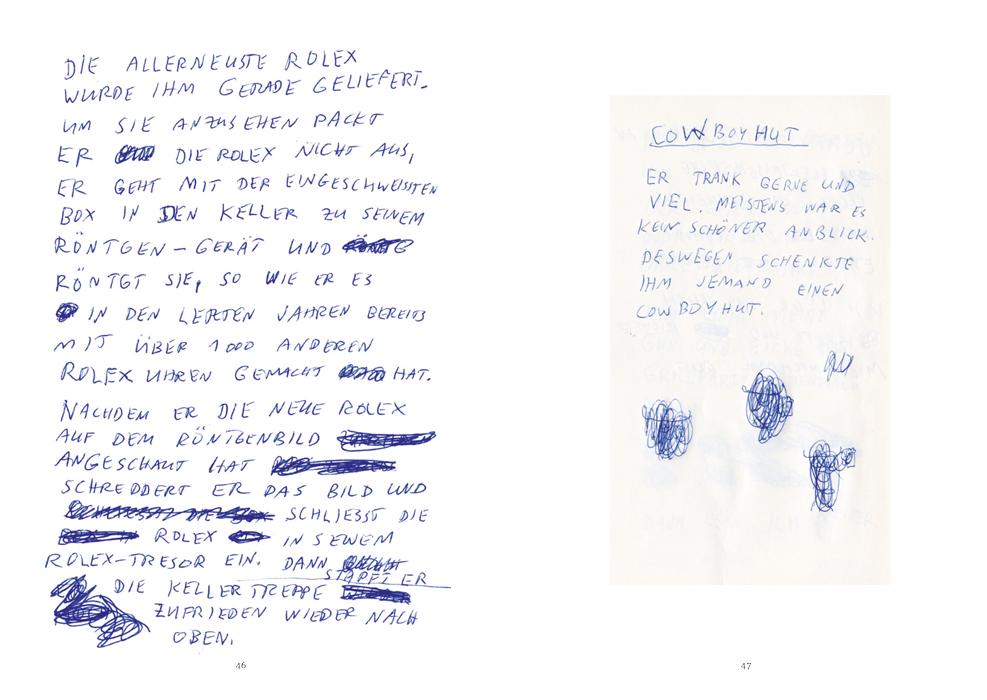 DIE ALLERNEUSTE ROLEX
WURDE IHM GERADE GELIEFERT.
UM SIE ANZUSEHEN PACKT
ER DIE ROLEX NICHT AUS,
ER GEHT MIT DER EINGESCHWEISSTEN
BOX IN DEN KELLER ZU SEINEM
RÖNTGEN-GERÄT UND
RÖNTGT SIE, SO WIE ER ES
IN DEN LETZTEN JAHREN BEREITS
MIT ÜBER 1000 ANDEREN
ROLEX UHREN GEMACHT HAT.
NACHDEM ER DIE NEUE ROLEX
AUF DEM RÖNTGENBILD
ANGESCHAUT HAT
SCHREDDERT ER DAS BILD UND
SCHLIESST DIE
ROLEX IN SEINEM
ROLEX-TRESOR EIN. DANN
STAPFT ER
DIE KELLERTREPPE
ZUFRIEDEN WIEDER NACH
OBEN.
46
COWBOYHUT
ER TRANK GERNE UND
VIEL. MEISTENS WAR ES
KEIN SCHÖNER ANBLICK.
DESWEGEN SCHENKTE
IHM JEMAND EINEN
COWBOYHUT.
47